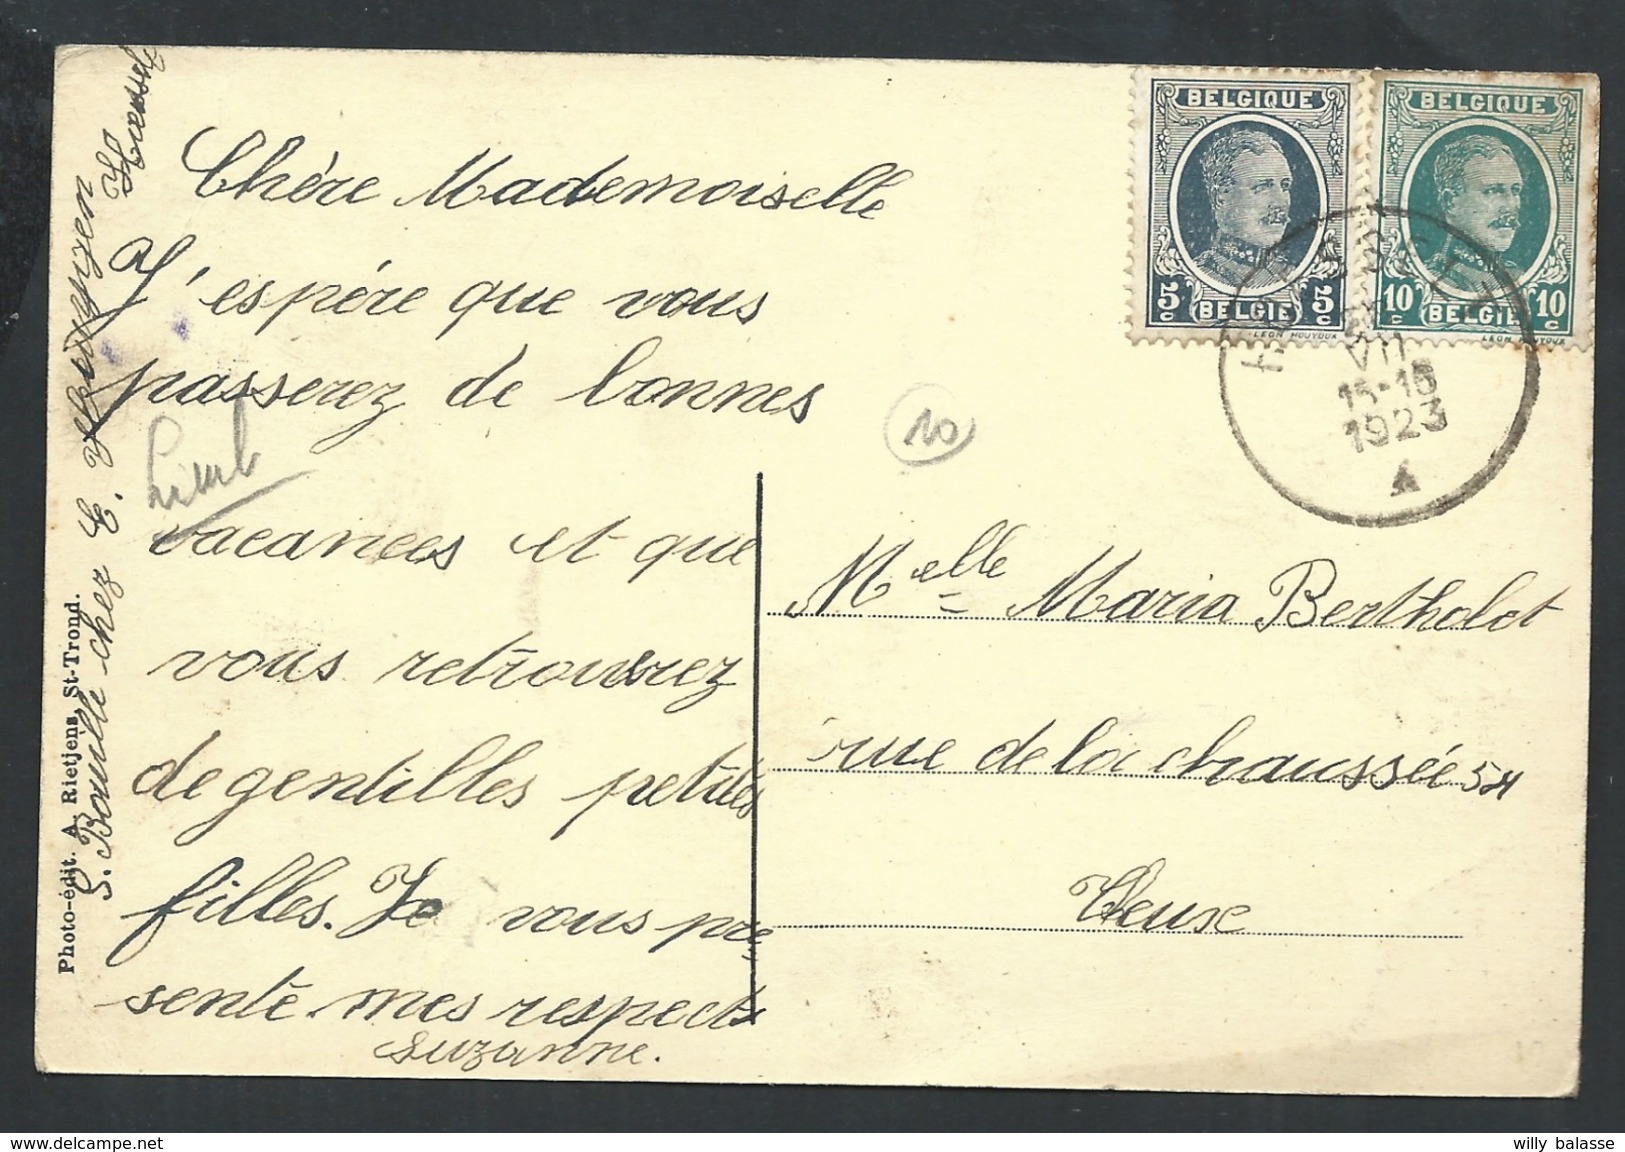 Chère Mademoiselle
J'espére que vous
passerez de bonnes
vacances et que
vous retrouvrez
de gentilles petites
filles. Je vous pré
sente mes respects
Suzanne.
Limb
10
S. Bouille chez E.
Photo-édit. A. Rietjens, St-Trond.
BELGIQUE
5c 5c
BELGIE
LEON HOUYOUX
BELGIQUE
10c 10c
BELGIE
LEON HOUYOUX
VII
15-16
1923
A
Melle Maria Bertholet
rue de la chaussée 54
Heux
willy balasse